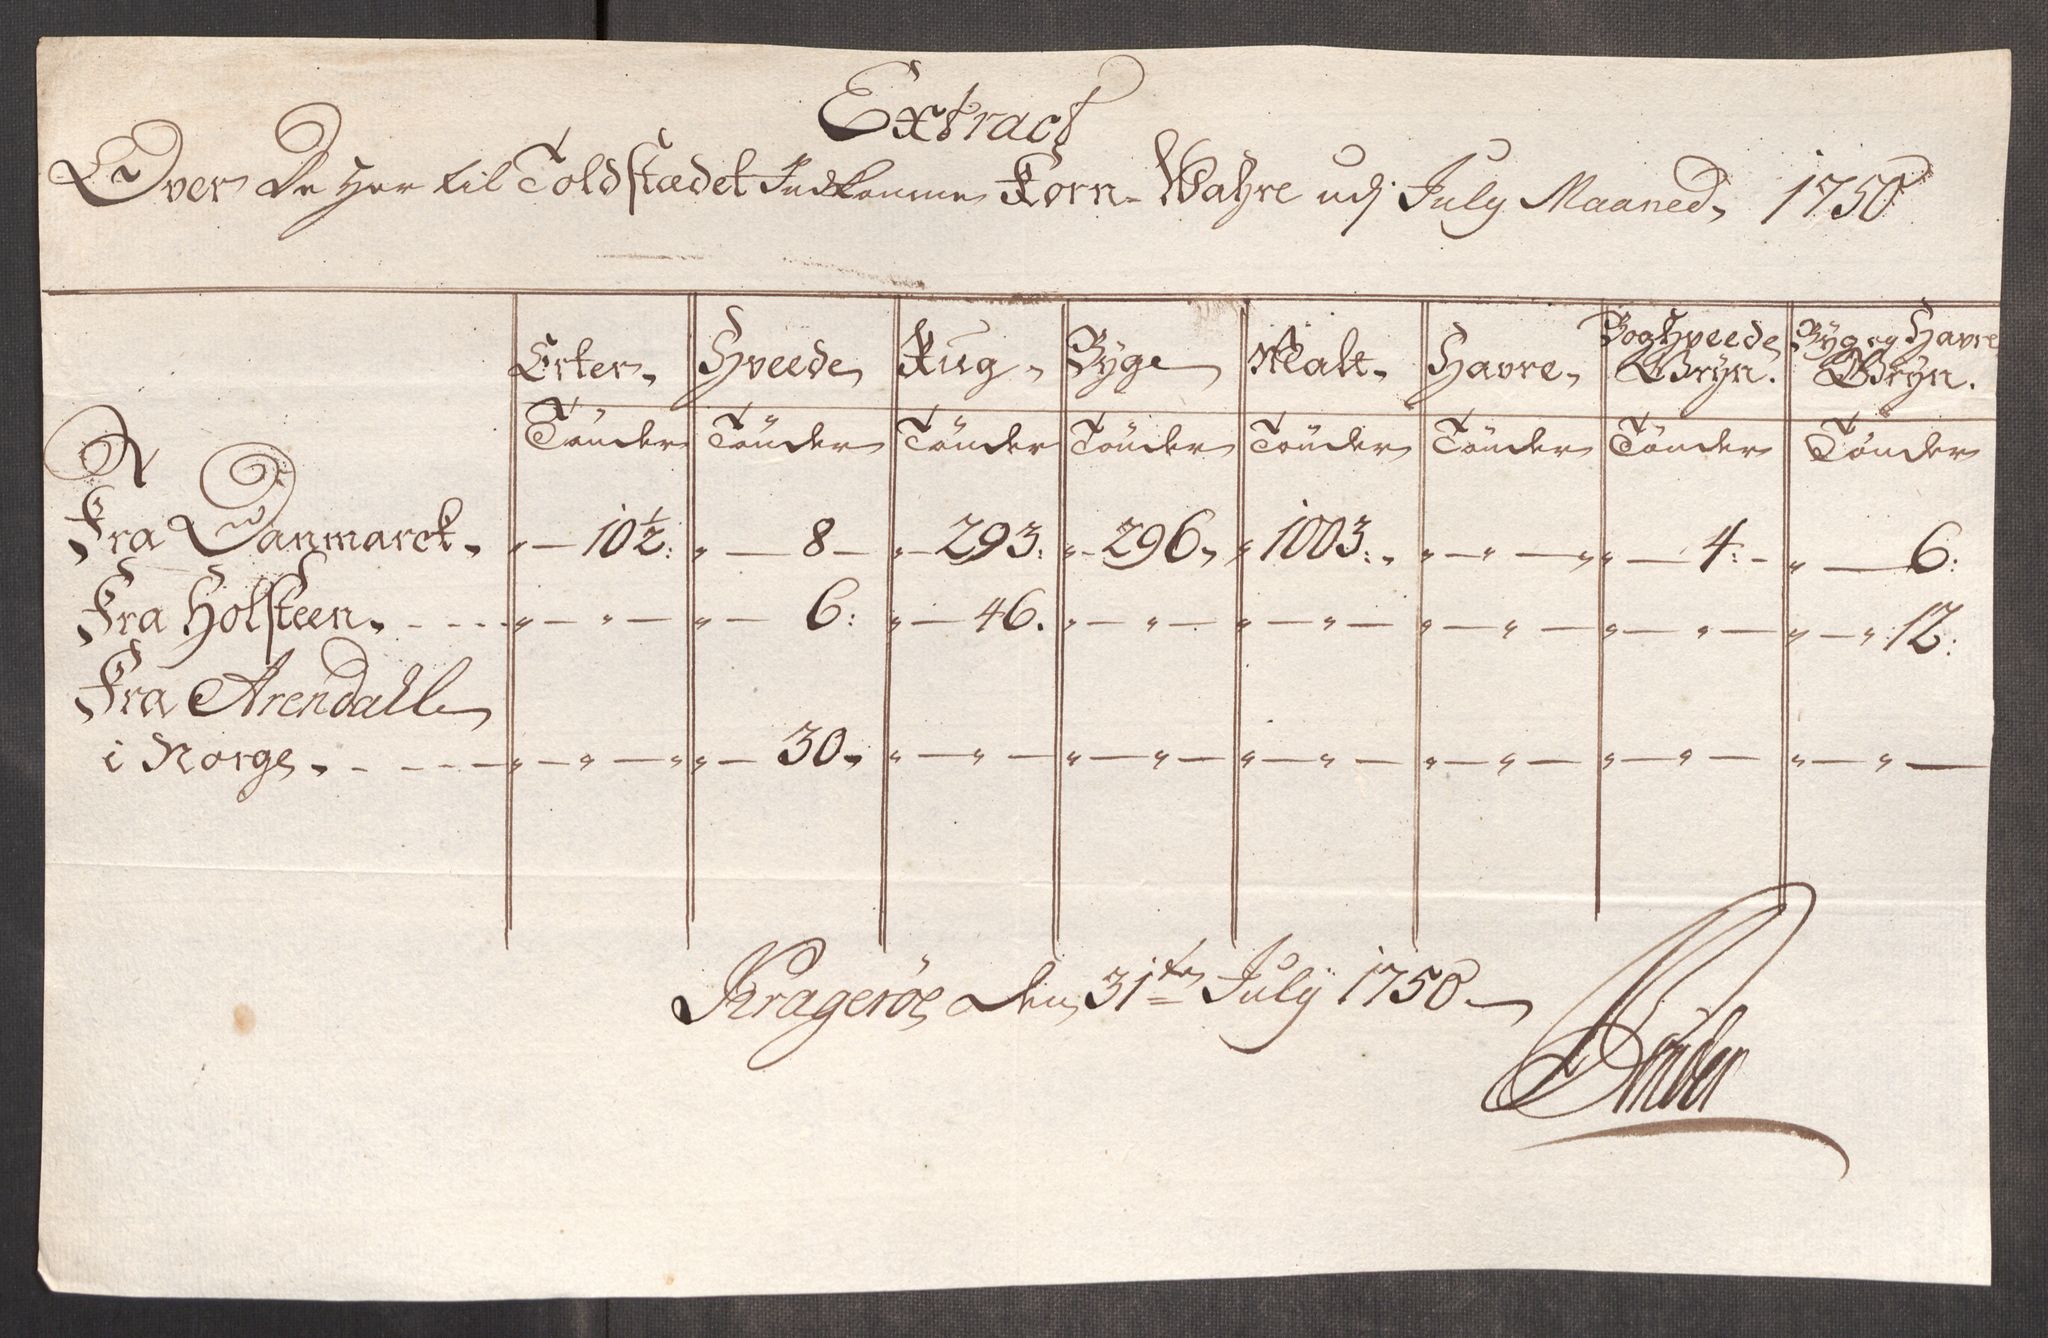 Extract
Over De Her til Toldstædet Indkomne Korn-Wahre udj July Maaned, 1750
Erter, Hveede, Rug, Byge Malt, Havre, Boghveede Gryn. Byg og Havre Gryn.
Tönder Tönder Tönder Tönder Tönder Tönder Tönder Tönder
Fra Danmarck, „ — 10½: „ — 8 — „ — 293: „ — 296, „ 1003:, „ — „ — „ „ — 4: - „ — 6:
Fra Holsteen, „ — „ — „ — 6: „ — 46. „ — „ — „ — „ — „ — „ — „ — „ — „ — „ 12:
Fra Arendall
i Norge, „ — „ — „ „ — 30, „ — „ — „ — „ — „ — „ — „ — „ — „ — „ — „ — „ —
Krageröe den 31te July 1750